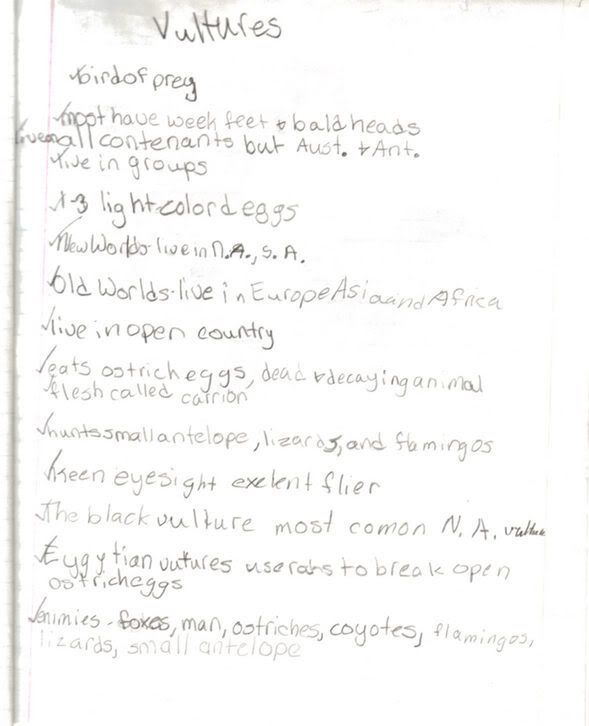 Vultures
✓bird of prey
✓most have week feet & bald heads
✓live on all contenants but Aust. & Ant.
✓live in groups
✓1-3 light-colord eggs
✓New Worlds-live in N.A., S.A.
✓Old Worlds-live in Europe Asia and Africa
✓live in open country
✓eats ostrich eggs, dead & decaying animal
✓flesh called carrion
✓hunts small antelope, lizards, and flamingos
✓Keen eyesight exelent flier
✓The black vulture most comon N. A. vulture
✓Eygytian vutures use to break open
ostrich eggs
✓enimies - foxes, man, ostriches, coyotes, flamingos,
lizards, small antelope